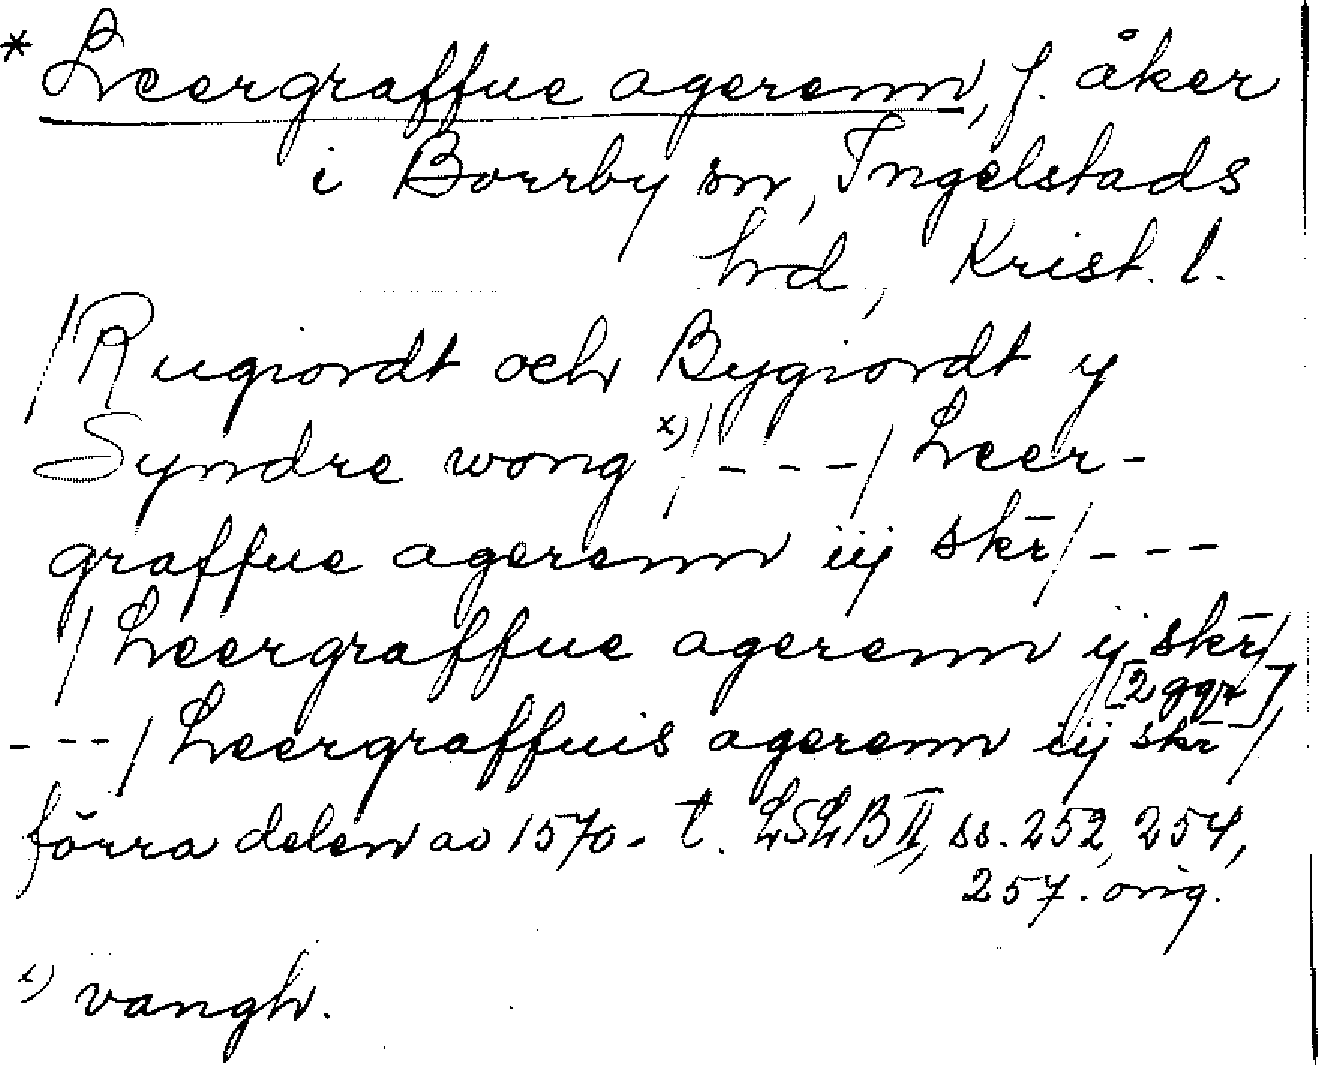 * Leergraffue agerenn, f. åker
i Borrby sn, Ingelstads
hd, Krist. l.
/Rugiordt och Bygiordt y
Syndre wong x)/ - - - / Leer-
graffue agerenn iij skr̄/ - - -
/ Leergraffue agerenn ij skr̄/
[2 ggr]
- - - / Leergraffuis agerenn iij skr̄ /
förra delen av 1570-t. LSLB II, ss. 252, 254,
257. orig.
x) vangh.